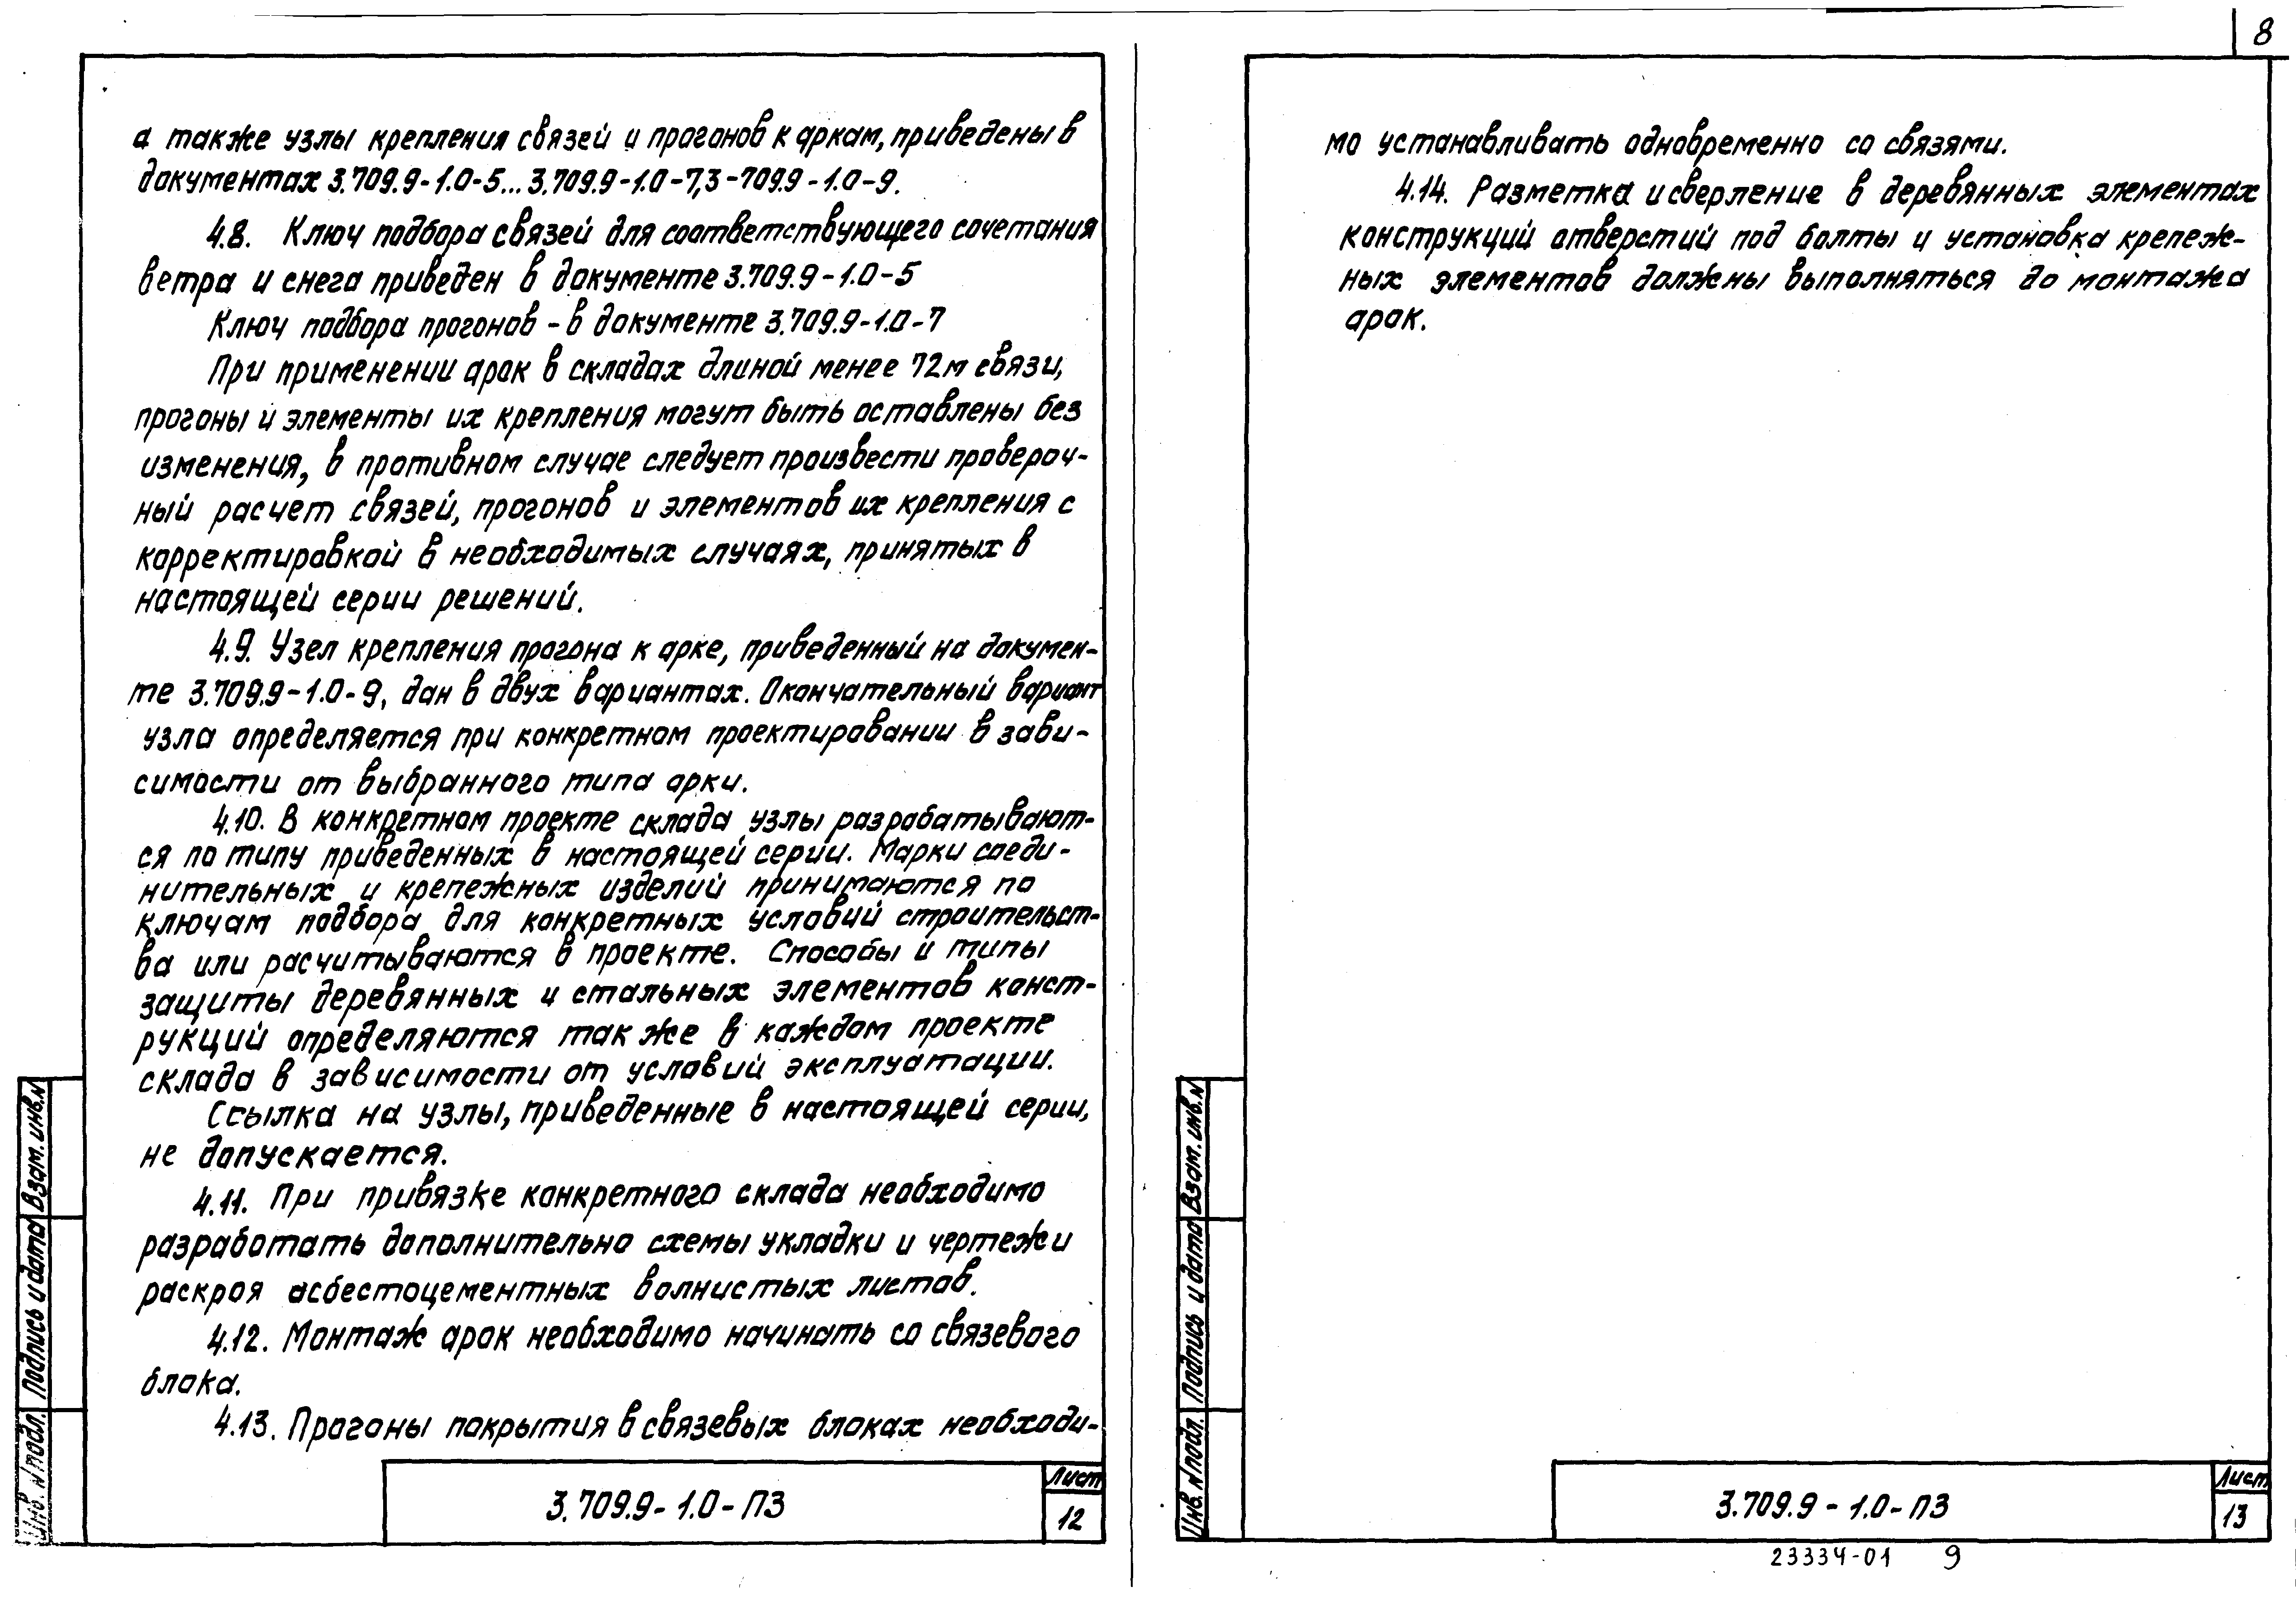 8
а также узлы крепления связей и прогонов к аркам, приведены в
документах 3.709.9-1.0-5... 3.709.9-1.0-7,3-709.9-1.0-9.
4.8. Ключ подбора связей для соответствующего сочетания
ветра и снега приведен в документе 3.709.9-1.0-5
Ключ подбора прогонов - в документе 3.709.9-1.0-7
При применении арок в складах длиной менее 72м связи,
прогоны и элементы их крепления могут быть оставлены без
изменения, в противном случае следует произвести провероч-
ный расчет связей, прогонов и элементов их крепления с
корректировкой в необходимых случаях, принятых в
настоящей серии решений.
4.9. Узел крепления прогона к арке, приведенный на докумен-
те 3.709.9-1.0-9, дан в двух вариантах. Окончательный вариант
узла определяется при конкретном проектировании в зави-
симости от выбранного типа арки.
4.10. В конкретном проекте склада узлы разрабатывают-
ся по типу приведенных в настоящей серии. Марки соеди-
нительных и крепежных изделий принимаются по
ключам подбора для конкретных условий строительст-
ва или расчитываются в проекте. Способы и типы
защиты деревянных и стальных элементов конст-
рукций определяются также в каждом проекте
склада в зависимости от условий эксплуатации.
Ссылка на узлы, приведенные в настоящей серии,
не допускается.
4.11. При привязке конкретного склада необходимо
разработать дополнительно схемы укладки и чертежи
раскроя асбестоцементных волнистых листов.
4.12. Монтаж арок необходимо начинать со связевого
блока.
4.13. Прогоны покрытия в связевых блоках необходи-
Инв. N подл.
Подпись и дата
Взам. инв. N
3.709.9-1.0-ПЗ
Лист
12
мо устанавливать одновременно со связями.
4.14. Разметка и сверление в деревянных элементах
конструкций отверстий под болты и установка крепеж-
ных элементов должны выполняться до монтажа
арок.
Инв. N подл.
Подпись и дата
Взам. инв. N
3.709.9-1.0-ПЗ
Лист
13
23334-01 9